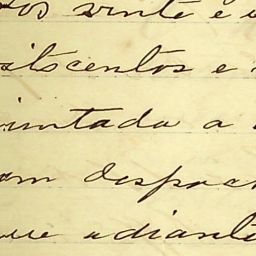 os vinte e
itocentos e
juntada a
om despac
ue adiante